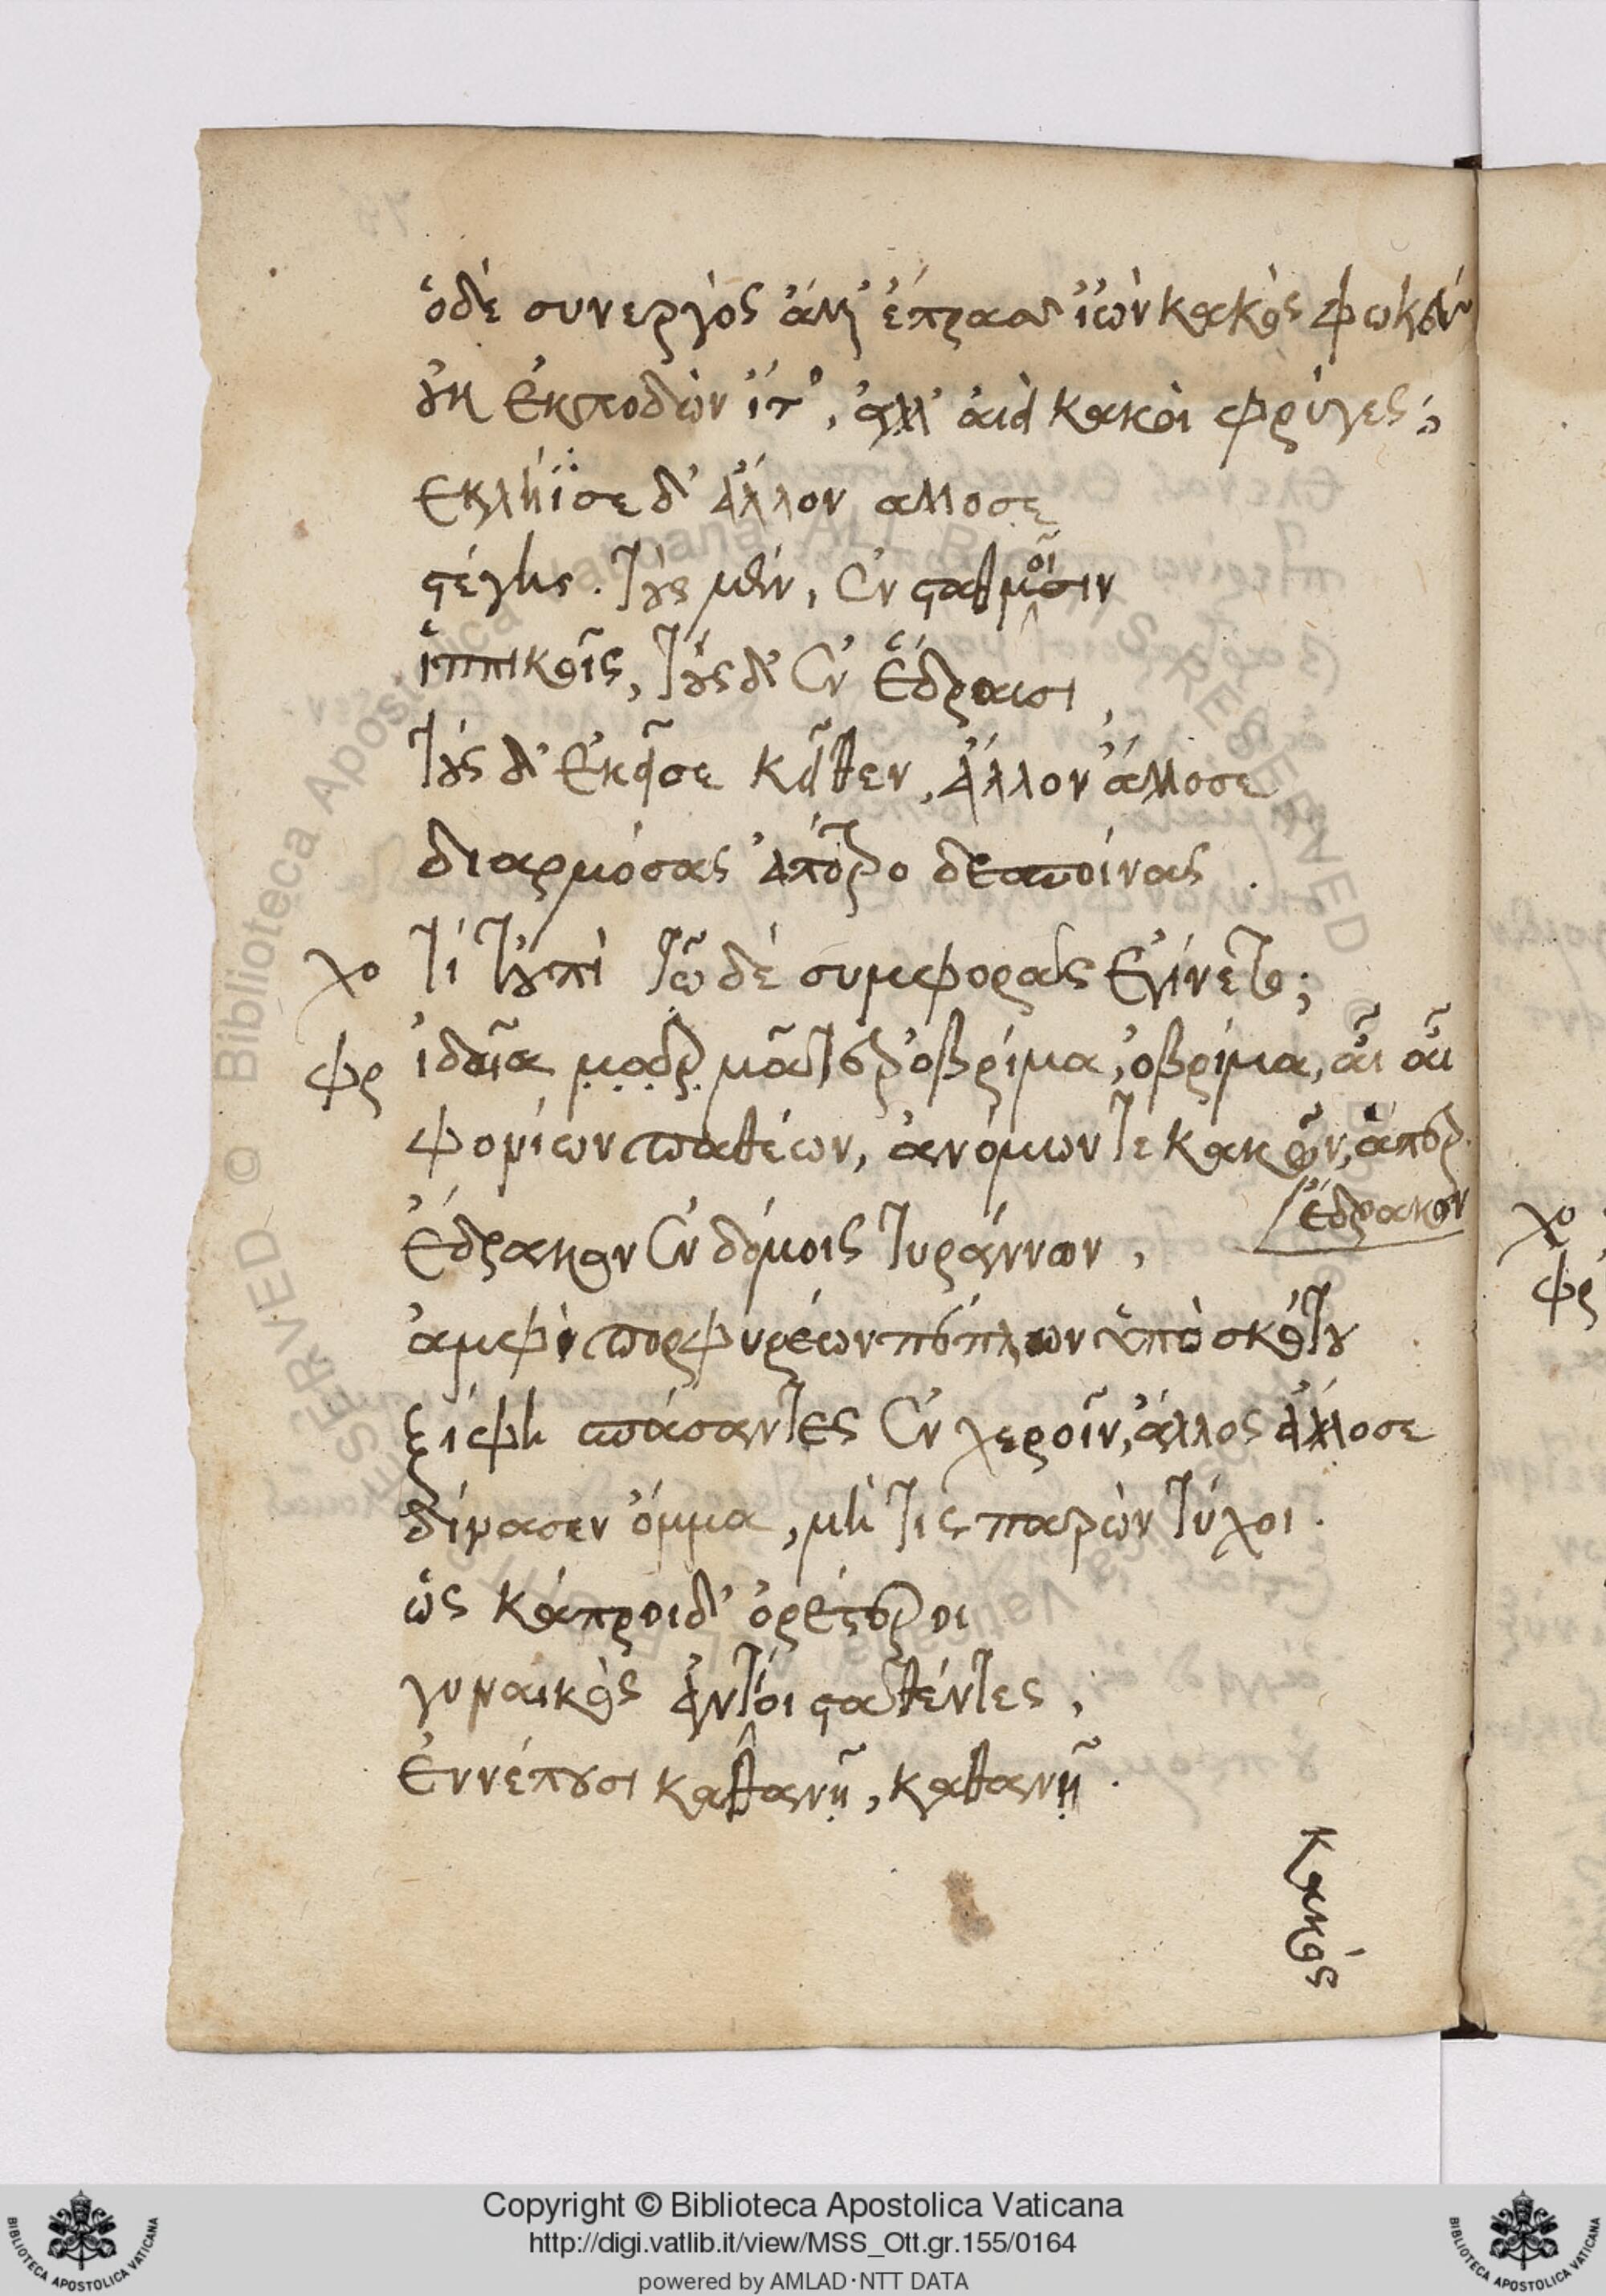 ὁδὲ συνεργὸς ἄλλ' ἔπρασσ' ἰὼν κακὸς φωκεύς
οὐκ ἐκποδὼν ἴτ', ἀλλ' ἀεὶ κακοὶ φρύγες;
ἐκλήϊσε δ' ἄλλον ἄλλοσε
στέγης. τοὺς μὲν, ἐν σταθμοῖσιν
ἱππικοῖς, τοὺς δ' ἐν ἕδραισι,
τοὺς δ' ἐκεῖσε κεῖθεν, ἄλλον ἄλλοσε
διαρμόσας ἀπόπρο δεσποίνας.
χο τί τοὐπὶ τῶδε συμφορᾶς ἐγίνετο;
φρ ἰδαῖα μᾶτερ μᾶτερ ὀβρίμα, ὀβρίμα, αἶ αἶ
φονίων παθέων, ἀνόμων τε κακῶν, ἅπερ
ἔδρακον
ἔδρακον ἐν δόμοις τυράννων,
ἀμφὶ πορφυρέων πέπλων ὑπὸ σκότου
ξίφη σπάσαντες ἐν χεροῖν, ἄλλος ἄλλοσε
δίνασεν ὄμμα, μή τις παρὼν τύχοι.
ὡς κάπροι δ' ὀρέστεροι
γυναικὸς ἀντίοι σταθέντες,
ἐννέπουσι κατθανῇ, κατθανῇ.
κακός
χο
φρ
Copyright © Biblioteca Apostolica Vaticana
http://digi.vatlib.it/view/MSS_Ott.gr.155/0164
powered by AMLAD·NTT DATA
BIBLIOTECA APOSTOLICA VATICANA
BIBLIOTECA APOSTOLICA VATICANA